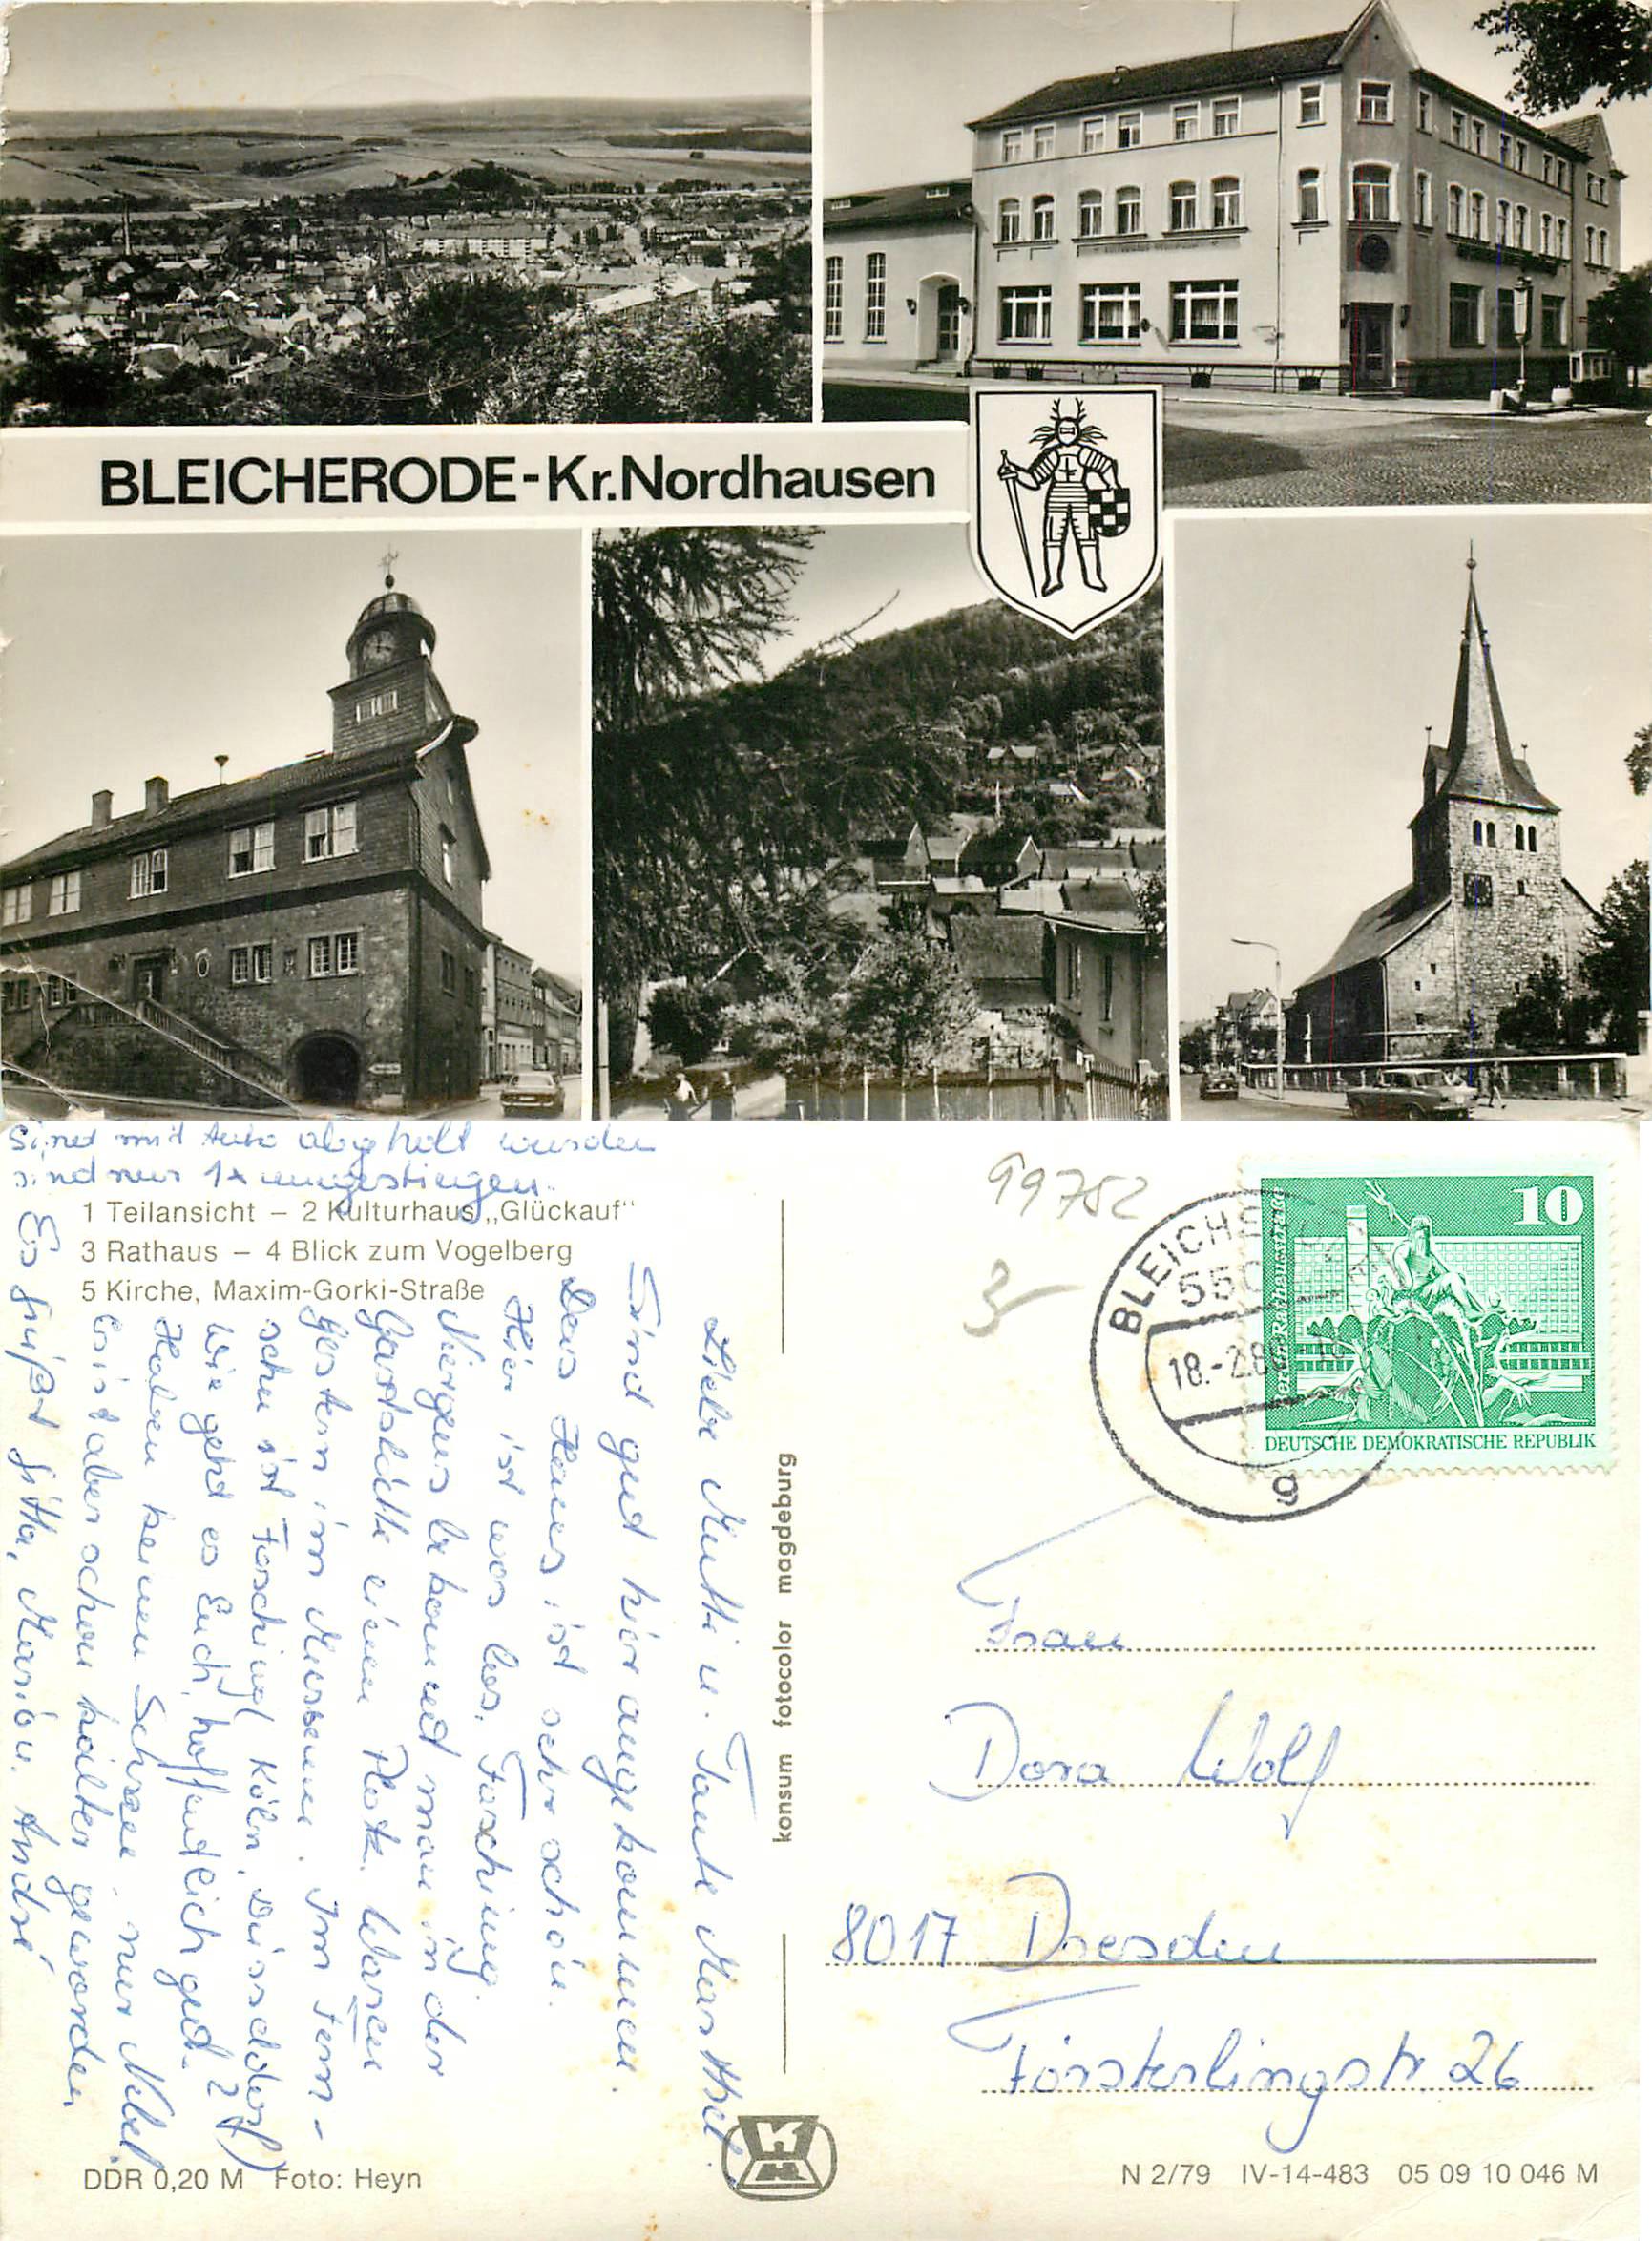 BLEICHERODE-Kr.Nordhausen
Sind mit Auto abgeholt wurden
sind nur 1x umgestiegen.
1 Teilansicht – 2 Kulturhaus „Glückauf“
3 Rathaus – 4 Blick zum Vogelberg
5 Kirche, Maxim-Gorki-Straße
Liebe Mutti u. Tante Marthel.
Sind gut hier angekommen.
Das Haus ist sehr schön.
Hier ist was los, Fasching.
Nirgens bekommt man in der
Gaststätte einen Platz. Waren
gestern im Museum. Im Fern-
sehen ist Fasching (Köln, Düsseldorf)
Wie geht es Euch, hoffentlich gut?
Haben keinen Schnee, nur Nebel.
Es ist aber schon kälter geworden
Es grüßt Gitta, Marion, André
konsum fotocolor magdeburg
99752
3
BLEICHE
550
18.-2.8
g
10
Berlin-Rathausstraße
DEUTSCHE DEMOKRATISCHE REPUBLIK
Frau
Dora Wolf
8017 Dresden
Försterlingstr. 26
DDR 0,20 M Foto: Heyn
N 2/79 IV-14-483 05 09 10 046 M